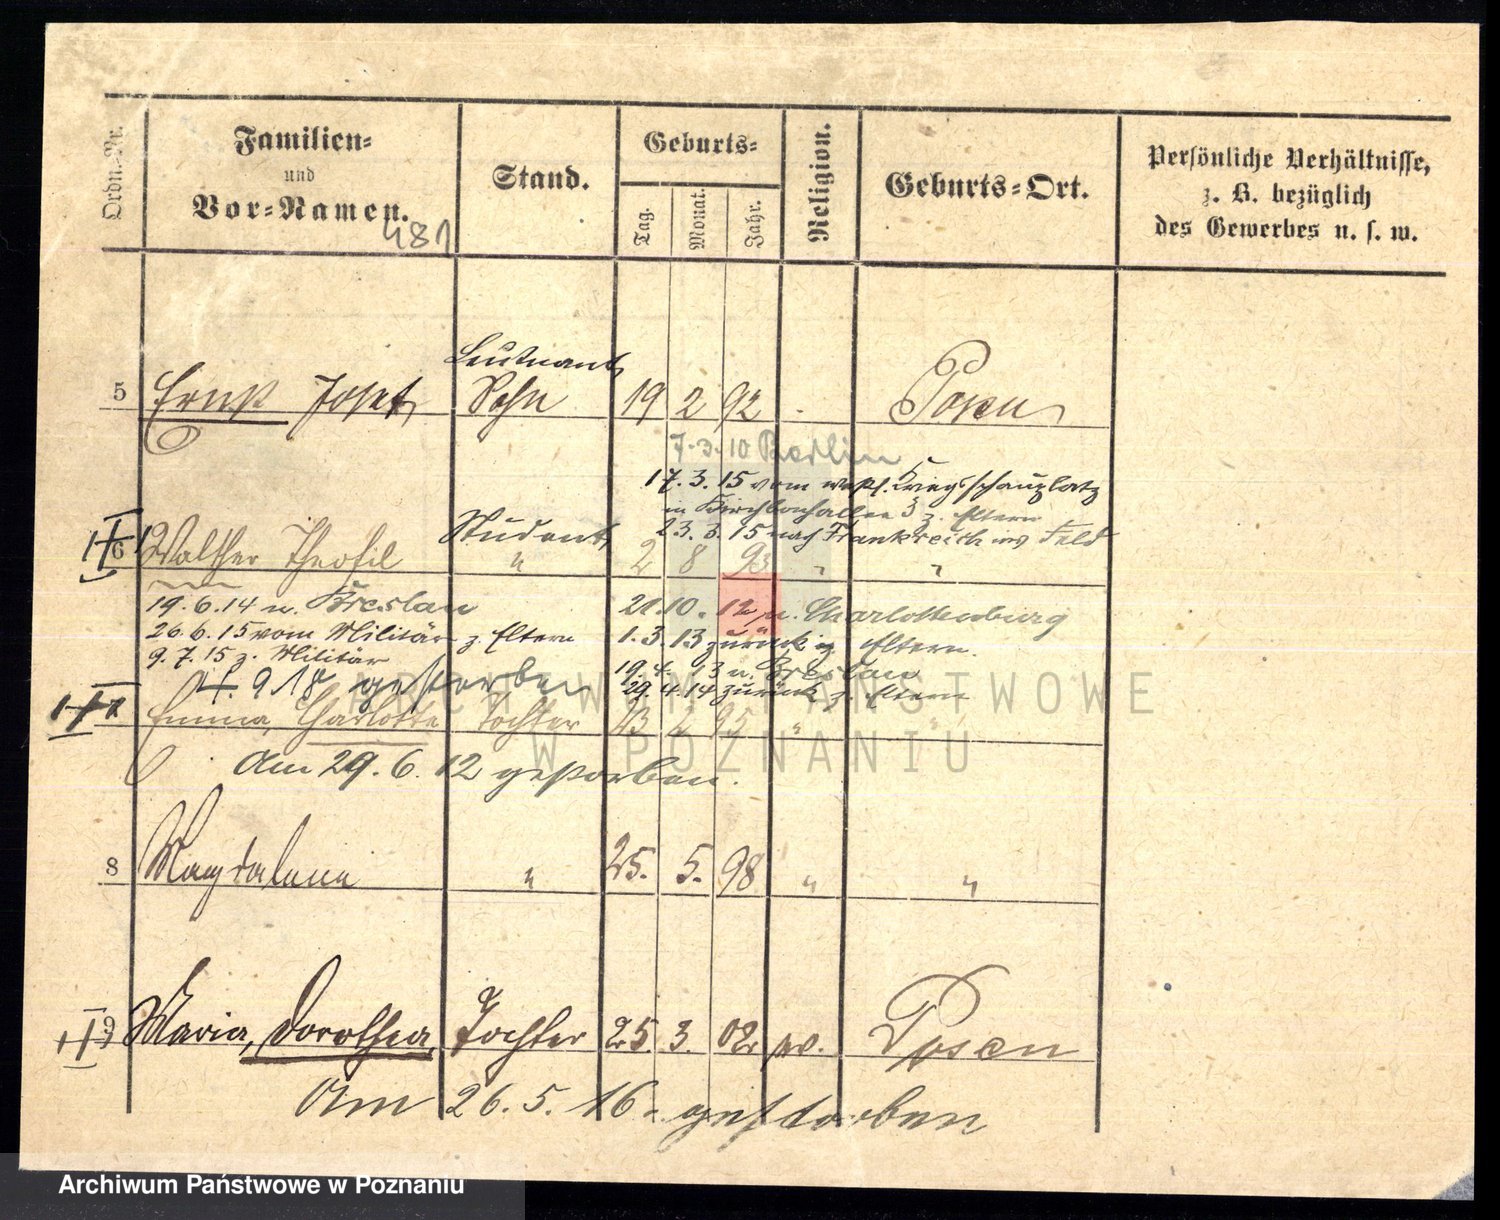 Ordn.-Nr.
Familien-
und
Vor-Namen.
Stand.
Geburts-
Tag.
Monat.
Jahr.
Religion.
Geburts-Ort.
Persönliche Verhältnisse,
z. B. bezüglich
des Gewerbes u. s. w.
481
Leutnant
5 Ernst Josef Sohn 19 2 92 Posen
7.3.10 Berlin
17.3.15 vom westl. Kriegsschauplatz
in z. Eltern
23.3.15 nach Frankreich ins Feld
Student
6 Walther Theofil " 2 8 93 " "
19.6.14 n. Breslau
26.6.15 vom Militär z. Eltern
9.7.15 z. Militär
9 18 gestorben
21.10.12 n. Charlottenburg
1.3.13 zurück z. Eltern.
19.4.13 n. Breslau
29.4.14 zurück z. Eltern
Emma, Charlotte Tochter 95 " "
Am 29.6.12 gestorben.
8 Magdalena " 25. 5. 98 " "
9 Maria, Dorothea, Tochter 25. 3. 02 Posen
Am 26.5.16. gestorben
ARCHIWUM PAŃSTWOWE
W POZNANIU
Archiwum Państwowe w Poznaniu